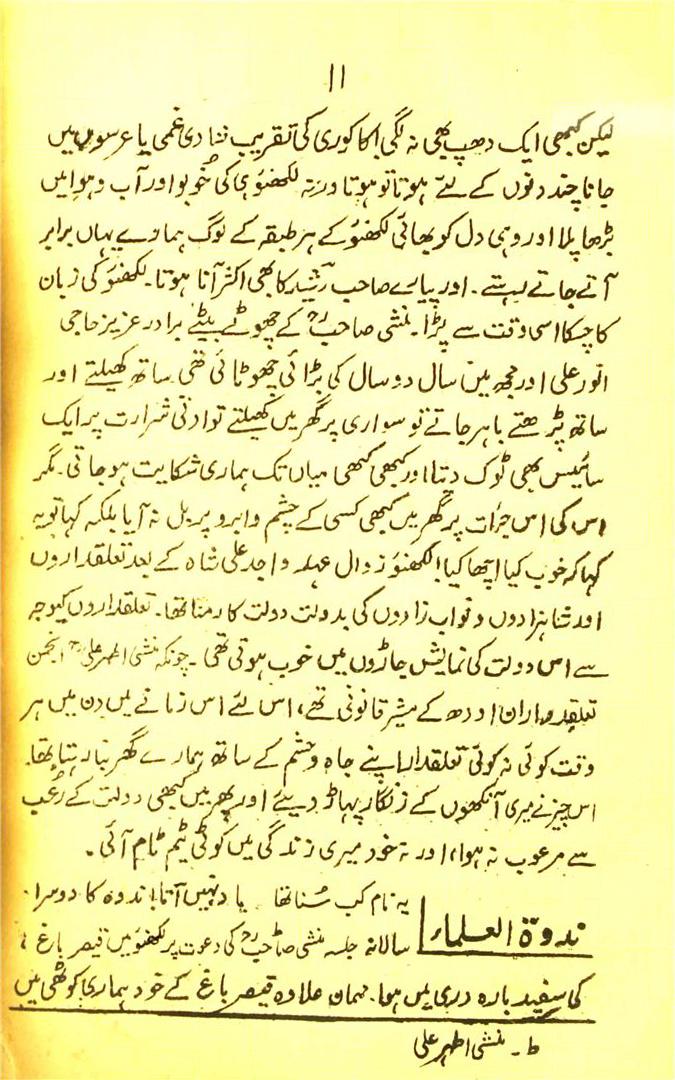 ۱۱
لیکن کبھی ایک دھپ بھی نہ لگی! کاکوری کی تقریب شادی غمی یا عرسوں میں
جانا چند دنوں کے لئے ہوتا تو ہوتا ورنہ لکھنؤ ہی کی خُو بو اور آب و ہوا میں
بڑھا پلا اور وہی دل کو بھائی لکھنؤ کے ہر طبقہ کے لوگ ہمارے یہاں برابر
آتے جاتے رہتے۔ اور پیارے صاحب رشید کا بھی اکثر آنا ہوتا۔ لکھنؤ کی زبان
کا چسکا اسی وقت سے پڑا۔ منشی صاحبؒ کے چھوٹے بیٹے برادر عزیز حاجی
انور علی اور مجھ میں سال دو سال کی بڑائی چھوٹائی تھی ساتھ کھیلتے اور
ساتھ پڑھتے باہر جاتے تو سواری پر گھر میں کھیلتے تو ادنٰی شرارت پر ایک
سائیس بھی ٹوک دیتا اور کبھی کبھی میاں تک ہماری شکایت ہو جاتی۔ مگر
اس کی اس جرأت پر گھر میں کبھی کسی کے چشم و ابرو پر بل نہ آیا بلکہ کہا تو یہ
کہا کہ خوب کیا اچھا کیا! لکھنؤ زوال عہد واجد علی شاہ کے بعد تعلقداروں
اور شاہزادوں و نواب زادوں کی بدولت دولت کا رمنا تھا۔ تعلقداروں کیوجہ
سے اس دولت کی نمایش جاڑوں میں خوب ہوتی تھی۔ چونکہ منشی اطہر علیؒ انجمن
تعلقداران اودھ کے مشیر قانونی تھے، اس لئے اس زمانے میں دن میں ہر
وقت کوئی نہ کوئی تعلقدار اپنے جاہ و حشم کے ساتھ ہمارے گھر بنا رہتا تھا۔
اس چیز نے میری آنکھوں کے زنگار پہاڑ دیئے اور پھر میں کبھی دولت کے رُعب
سے مرعوب نہ ہوا، اور نہ خود میری زندگی میں کوئی ٹیم ٹام آئی۔
ندوۃ العلماء یہ نام کب سُنا تھا یاد نہیں آتا! ندوہ کا دوسرا
سالانہ جلسہ منشی صاحبؒ کی دعوت پر لکھنؤ میں قیصر باغ
کی سفید بارہ دری میں ہوا۔ مہمان علاوہ قیصر باغ کے خود ہماری کوٹھی میں
ط۔ منشی اطہر علی